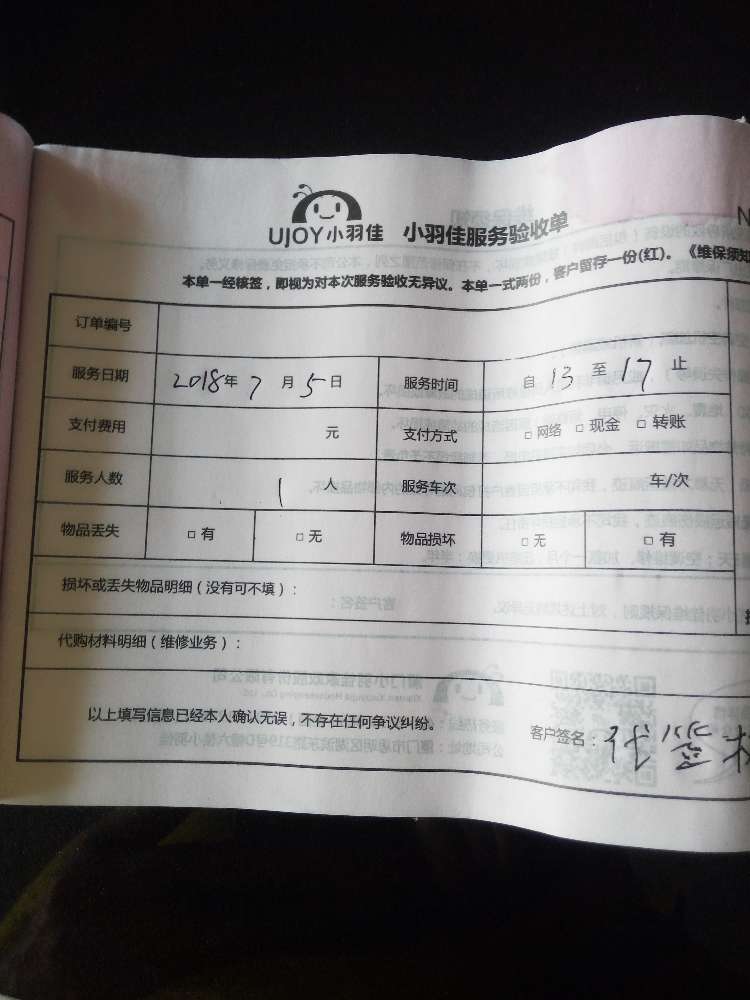 UJOY小羽佳 小羽佳服务验收单
N
本单一经核签，即视为对本次服务验收无异议。本单一式两份，客户留存一份(红)。《维保须知
订单编号
服务日期 2018年7月5日 服务时间 自13至17止
支付费用 元 支付方式 □网络 □现金 □转账
服务人数 1人 服务车次 车/次
物品丢失 □有 □无 物品损坏 □无 □有
损坏或丢失物品明细（没有可不填）：
代购材料明细（维修业务）：
以上填写信息已经本人确认无误，不存在任何争议纠纷。
客户签名：代签